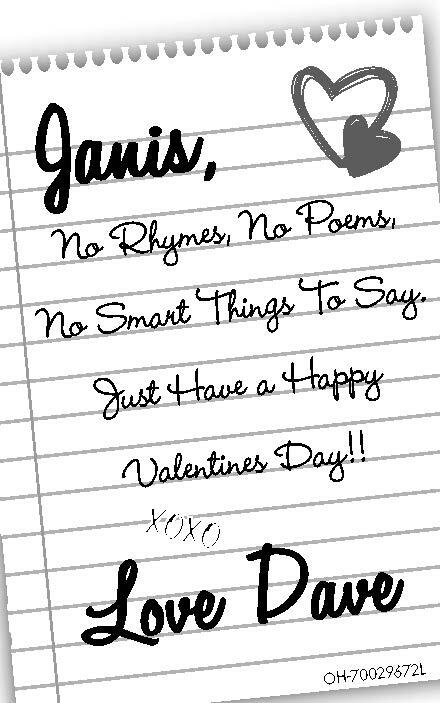 Janis,
No Rhymes, No Poems,
No Smart Things To Say.
Just Have a Happy
Valentines Day!!
XOXO
Love Dave
OH-70029672L